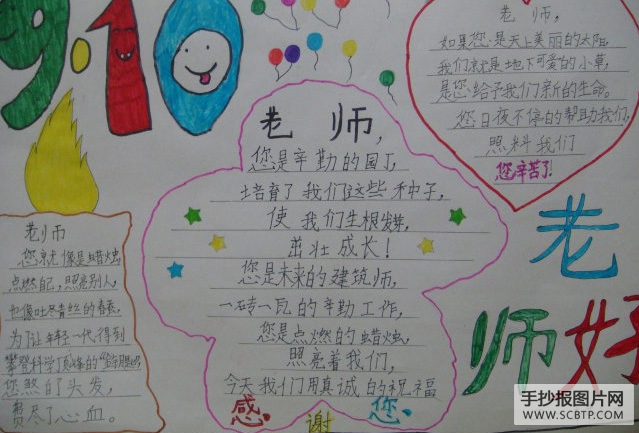 9.10
老师，
如果您是天上美丽的太阳，
我们就是地下可爱的小草，
是您给予我们新的生命。
您日夜不停的帮助我们，
照料我们
您辛苦了！
老师，
您是辛勤的园丁，
培育了我们这些种子，
使我们生根发芽，
茁壮成长！
您是未来的建筑师，
一砖一瓦的辛勤工作，
您是点燃的蜡烛，
照亮着我们，
今天我们用真诚的祝福
感 谢 您
老师
您就像是蜡烛，
点燃自己，照亮别人，
也像吐尽青丝的春蚕，
为了让年轻一代得到
攀登科学顶峰的
您熬白了头发，
费尽了心血。
老
师好
手抄报图片网
WWW.SCBTP.COM